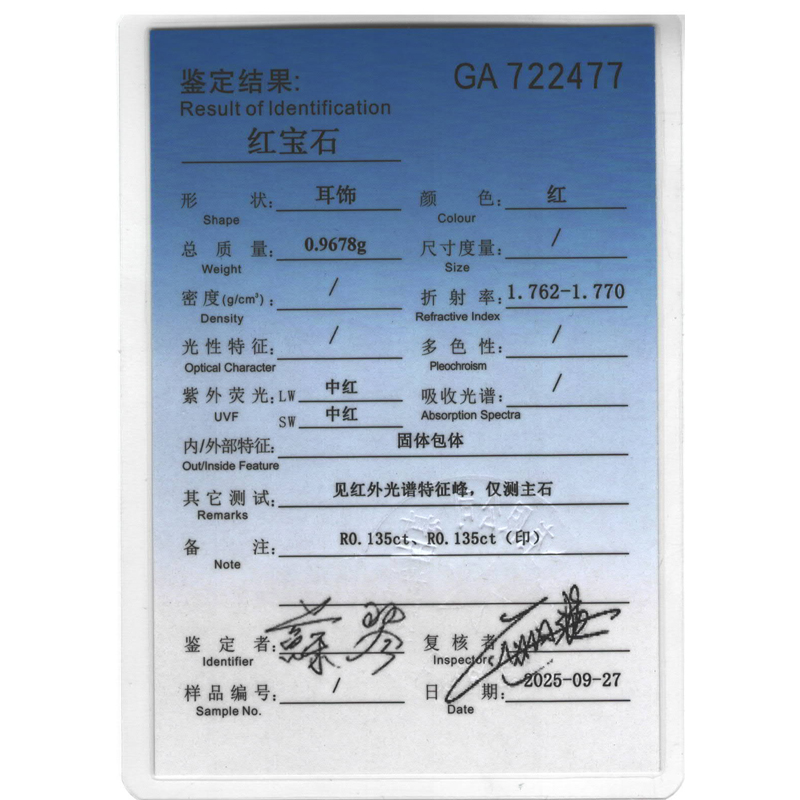 鉴定结果:
GA 722477
Result of Identification
红宝石
形状: 耳饰 颜色: 红
Shape Colour
总质量: 0.9678g 尺寸度量: /
Weight Size
密度(g/cm³): / 折射率: 1.762-1.770
Density Refractive Index
光性特征: / 多色性: /
Optical Character Pleochroism
紫外荧光: LW 中红 吸收光谱: /
UVF SW 中红 Absorption Spectra
内/外部特征: 固体包体
Out/Inside Feature
其它测试: 见红外光谱特征峰，仅测主石
Remarks
备注: R0.135ct、R0.135ct（印）
Note
鉴定者: 复核者
Identifier Inspector
样品编号: / 日期: 2025-09-27
Sample No. Date